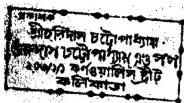 প্রকাশক
শ্রীহরিদাস চট্টোপাধ্যায়
গুরুদাস চট্টোপাধ্যায় এণ্ড সন্স
২০৩/১/১ কর্ণওয়ালিস ষ্ট্রীট
কলিকাতা